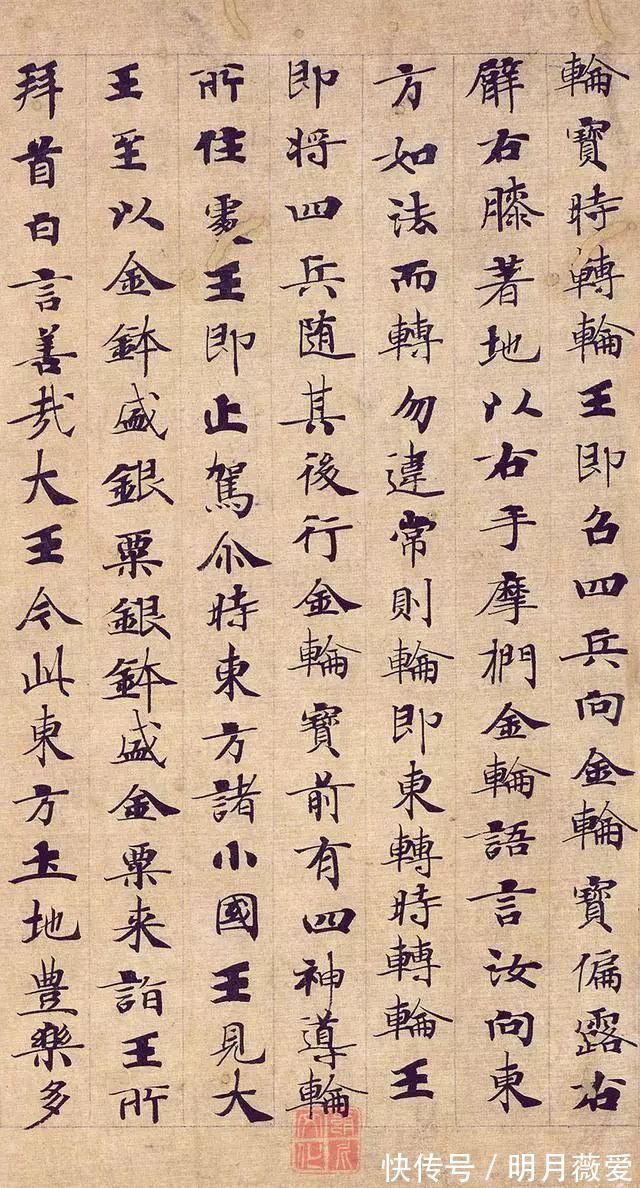 輪寶時轉輪王即召四兵向金輪寶偏露右
臂右膝著地以右手摩捫金輪語言汝向東
方如法而轉勿違常則輪即東轉時轉輪王
即將四兵随其後行金輪寶前有四神導輪
所住處王即止駕尒時東方諸小國王見大
王至以金鉢盛銀粟銀鉢盛金粟来詣王所
拜首白言善哉大王今此東方土地豊樂多
快传号／明月薇爱